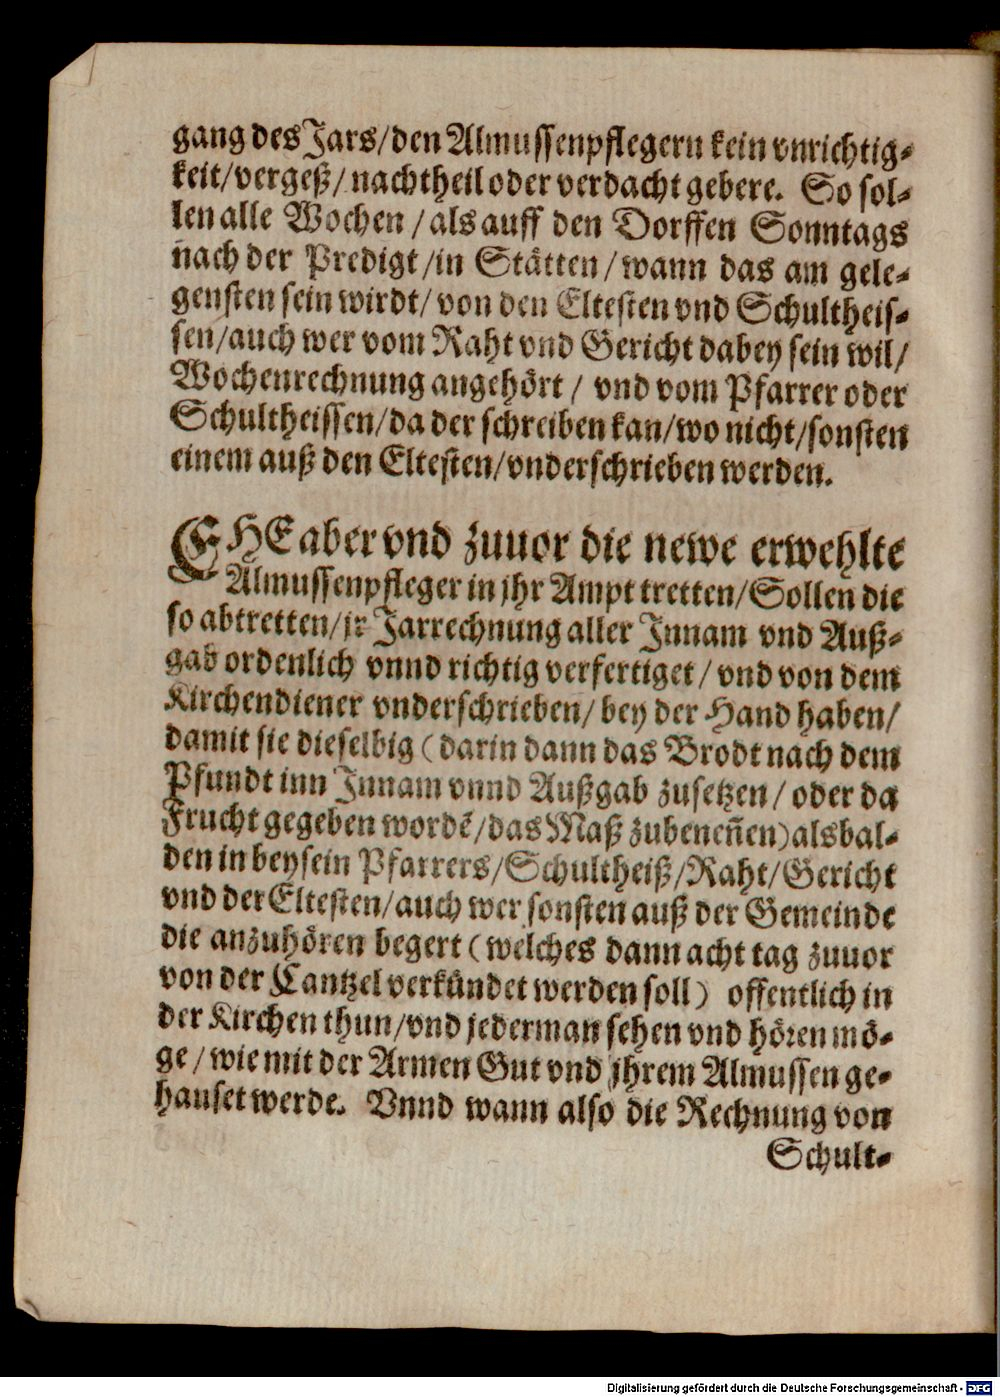 gang des Jars/den Almussenpflegern kein vnrichtig-
keit/vergeß/nachtheil oder verdacht gebere. So sol-
len alle Wochen/als auff den Dorffen Sonntags
nach der Predigt/in Stätten/wann das am gele-
gensten sein wirdt/von den Eltesten vnd Schultheis-
sen/auch wer vom Raht vnd Gericht dabey sein wil/
Wochenrechnung angehört/ vnd vom Pfarrer oder
Schultheissen/da der schreiben kan/wo nicht/sonsten
einem auß den Eltesten/vnderschrieben werden.
EHE aber vnd zuuor die newe erwehlte
Almussenpfleger in jhr Ampt tretten/Sollen die
so abtretten/jr Jarrechnung aller Innam vnd Auß-
gab ordenlich vnnd richtig verfertiget/vnd von dem
Kirchendiener vnderschrieben/bey der Hand haben/
damit sie dieselbig (darin dann das Brodt nach dem
Pfundt inn Innam vnnd Außgab zusetzen/oder da
Frucht gegeben wordē/das Maß zubeneñen) alsbal-
den in beysein Pfarrers/Schultheiß/Raht/Gericht
vnd der Eltesten/auch wer sonsten auß der Gemeinde
die anzuhören begert (welches dann acht tag zuuor
von der Cantzel verkündet werden soll) offentlich in
der Kirchen thun/vnd jederman sehen vnd hören mö-
ge/wie mit der Armen Gut vnd jhrem Almussen ge-
hauset werde. Vnnd wann also die Rechnung von
Schult-
Digitalisierung gefördert durch die Deutsche Forschungsgemeinschaft - DFG